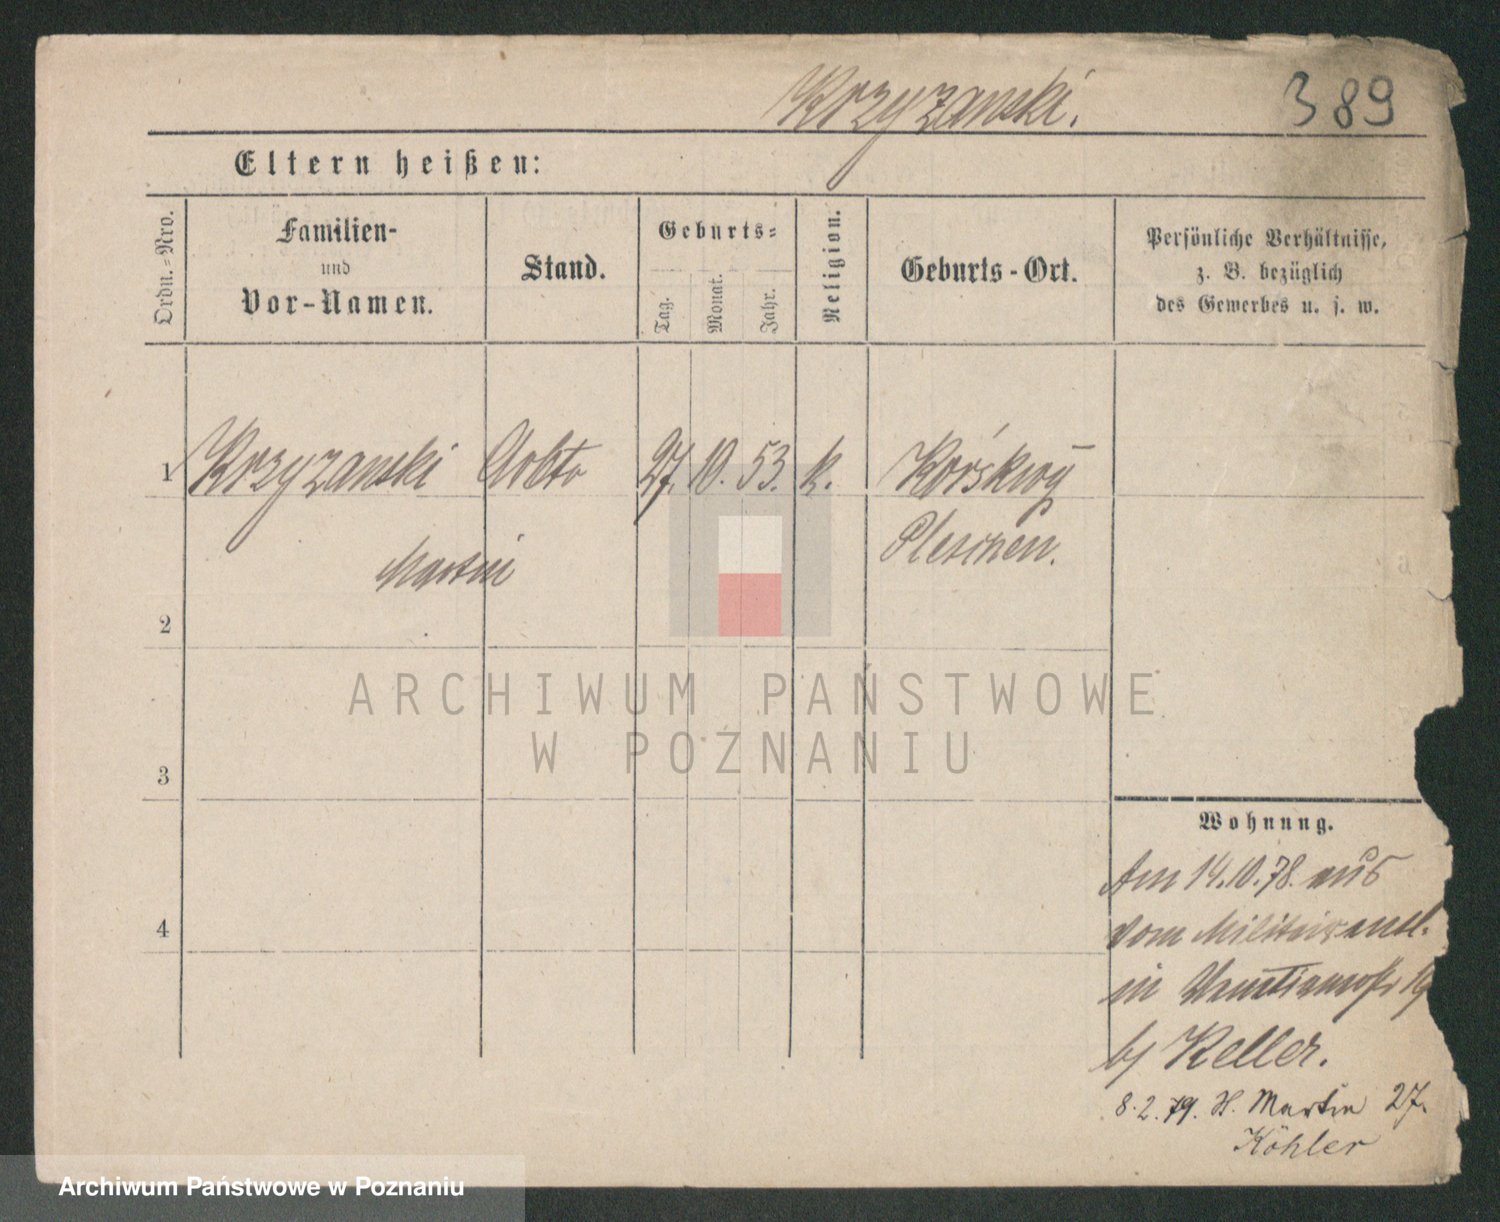 Krzyzanski.
389
Eltern heißen:
Ordn.-Nro.
Familien-
und
Vor-Namen.
Stand.
Geburts-
Tag.
Monat.
Jahr.
Religion.
Geburts-Ort.
Persönliche Verhältnisse,
z. B. bezüglich
des Gewerbes u. s. w.
1 Krzyzanski 27. 10. 53. k.
Pleschen.
Martin
2
3
4
ARCHIWUM PAŃSTWOWE
W POZNANIU
Wohnung.
Am 14.10.78. aus
vom
in
by Keller.
8.2.79. St. Martin 27.
Köhler
Archiwum Państwowe w Poznaniu